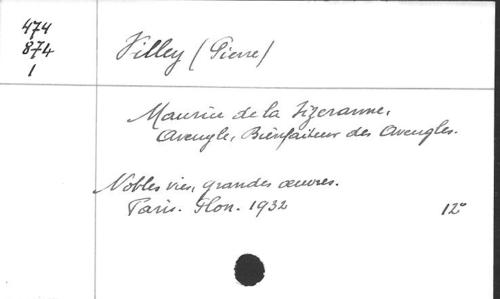 474
874
1
Villey (Pierre)
Maurice de la Sizeranne,
Aveugle, Bienfaiteur des Aveugles.
Nobles vies, grandes œuvres.
Paris. Plon. 1932 12°